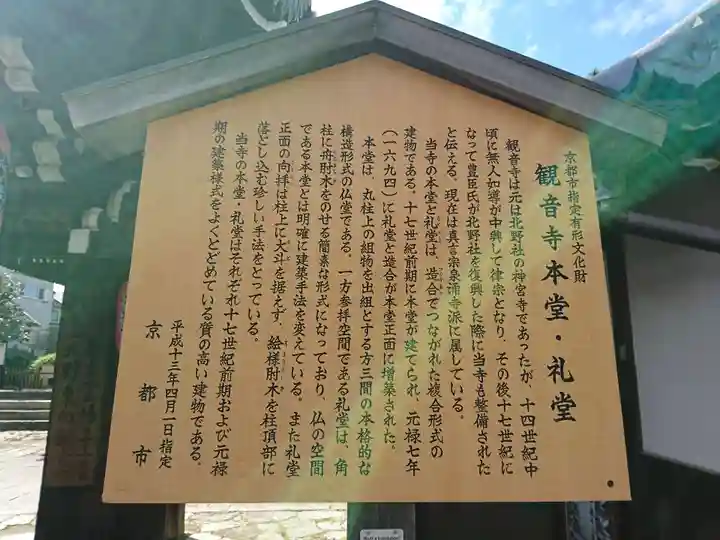 京都市指定有形文化財
観音寺本堂・礼堂
観音寺は元は北野社の神宮寺であったが、十四世紀中
頃に無人如導が中興して律宗となり、その後十七世紀に
なって豊臣氏が北野社を復興した際に当寺も整備された
と伝える。現在は真言宗泉涌寺派に属している。
当寺の本堂と礼堂は、造合でつながれた複合形式の
建物である。十七世紀前期に本堂が建てられ、元禄七年
（一六九四）に礼堂と造合が本堂正面に増築された。
本堂は、丸柱上の組物を出組とする方三間の本格的な
構造形式の仏堂である。一方参拝空間である礼堂は、角
柱に舟肘木をのせる簡素な形式になっており、仏の空間
である本堂とは明確に建築手法を変えている。また礼堂
正面の向拝は柱上に大斗を据えず、絵様肘木を柱頂部に
落とし込む珍しい手法をとっている。
当寺の本堂・礼堂はそれぞれ十七世紀前期および元禄
期の建築様式をよくとどめている質の高い建物である。
平成十三年四月一日指定
京都市